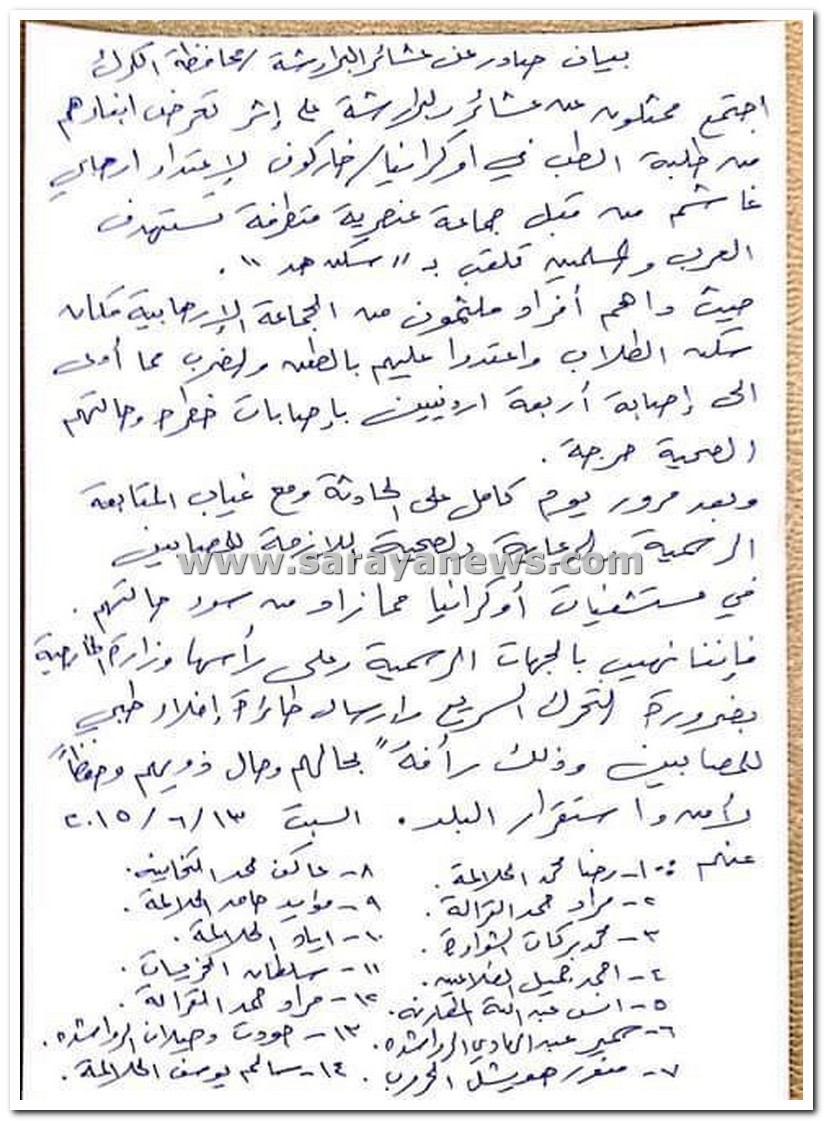 بيان صادر عن عشائر البرارشة / محافظة الكرك
اجتمع ممثلون عن عشائر البرارشة على إثر تعرض ابناءهم
من طلبة الطب في اوكرانيا/خاركوف لإعتداء ارهابي
غاشم من قبل جماعة عنصرية متطرفة تستهدف
العرب والمسلمين تلقب بـ "سكن هد".
حيث داهم أفراد ملثمون من الجماعة الإرهابية مكان
سكن الطلاب واعتدوا عليهم بالطعن والضرب مما أدى
الى إصابة أربعة اردنيين بإصابات خطرة وحالتهم
الصحية حرجة.
وبعد مرور يوم كامل على الحادثة ومع غياب المتابعة
الرسمية والرعاية الصحية اللازمة للمصابين
www.sarayanews.com
في مستشفيات أوكرانيا مما زاد من سوء حالتهم.
فإننا نهيب بالجهات الرسمية وعلى رأسها وزارة الخارجية
بضرورة التحرك السريع وارسال طائرة إخلاء طبي
للمصابين وذلك رأفةً بحالهم وحال ذويهم وحفظاً
لأمن واستقرار البلد. السبت ٢٠١٥/٦/١٣
عنهم :- ١- رضا محمد الحلالمة.
٢- مراد حمد القرالة.
٣- محمد بركات الشوارة.
٤- احمد جميل الضلاعين
٥- انس عبدالله المقارنه.
٦- سمير عبدالهادي الرواشده.
٧- منور هويشل الحروب.
٨- عاكف محمد الكفاوين.
٩- مؤيد حامد الحلالمة.
١٠- اياد الحلالمة.
١١- سلطان
١٢- مراد حمد القرالة.
١٣- جودت الرواشده.
١٤- سالم يوسف الحلالمة.